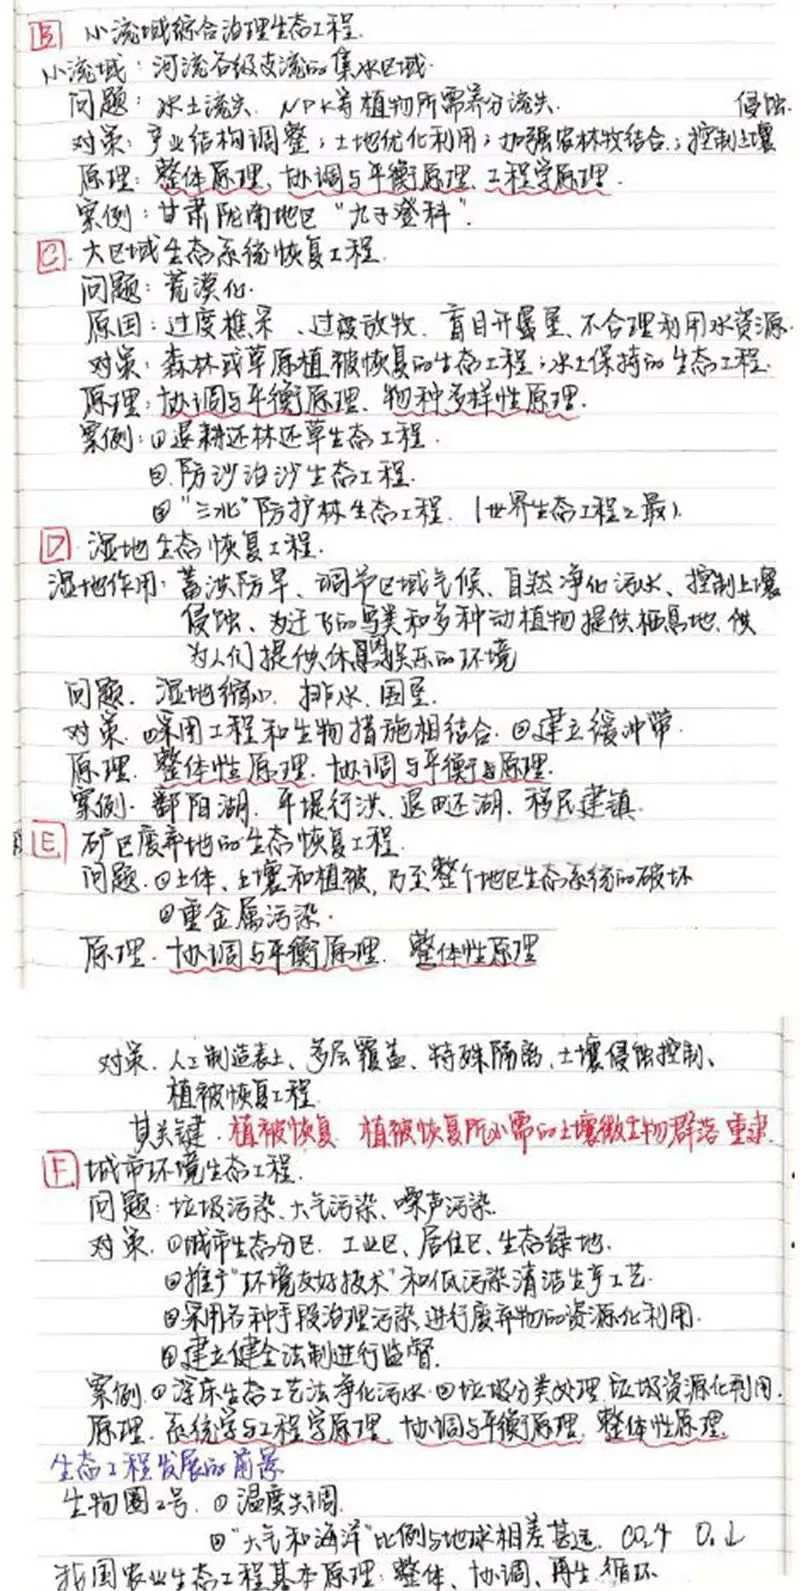 B 小流域综合治理生态工程.
小流域:河流各级支流的集水区域.
问题:水土流失、NPK等植物所需养分流失.
侵蚀.
对策:产业结构调整;土地优化利用;加强农林牧结合;控制土壤
原理:整体原理、协调与平衡原理、工程学原理.
案例:甘肃陇南地区"九子登科".
C 大区域生态系统恢复工程.
问题:荒漠化.
原因:过度樵采、过度放牧、盲目开垦、不合理利用水资源.
对策:森林或草原植被恢复的生态工程;水土保持的生态工程.
原理:协调与平衡原理、物种多样性原理.
案例:①退耕还林还草生态工程.
②防沙治沙生态工程.
③"三北"防护林生态工程.(世界生态工程之最)
D 湿地生态恢复工程.
湿地作用:蓄洪防旱、调节区域气候、自然净化污水、控制土壤
侵蚀、为迁飞的鸟类和多种动植物提供栖息地、供
为人们提供休息娱乐的环境
问题.湿地缩小、排水、围垦.
对策.①采用工程和生物措施相结合.②建立缓冲带.
原理.整体性原理.协调与平衡与原理.
案例.鄱阳湖.平堤行洪、退田还湖、移民建镇.
E 矿区废弃地的生态恢复工程.
问题.①土体、土壤和植被,乃至整个地区生态系统的破坏
②重金属污染.
原理.协调与平衡原理.整体性原理
对策.人工制造表土、多层覆盖、特殊隔离、土壤侵蚀控制、
植被恢复工程.
其关键.植被恢复 植被恢复所必需的土壤微生物群落重建.
F 城市环境生态工程.
问题:垃圾污染、大气污染、噪声污染.
对策.①城市生态分区.工业区、居住区、生态绿地.
②推广"环境友好技术"和低污染清洁生产工艺.
③采用各种手段治理污染,进行废弃物的资源化利用.
④建立健全法制进行监督.
案例.①浮床生态工艺法净化污水.②垃圾分类处理 垃圾资源化利用.
原理.系统学与工程学原理.协调与平衡原理.整体性原理.
生态工程发展的前景
生物圈2号.①温度失调.
②"大气和海洋"比例与地球相差甚远. CO₂↑ O₂↓
我国农业生态工程基本原理:整体、协调、再生、循环.